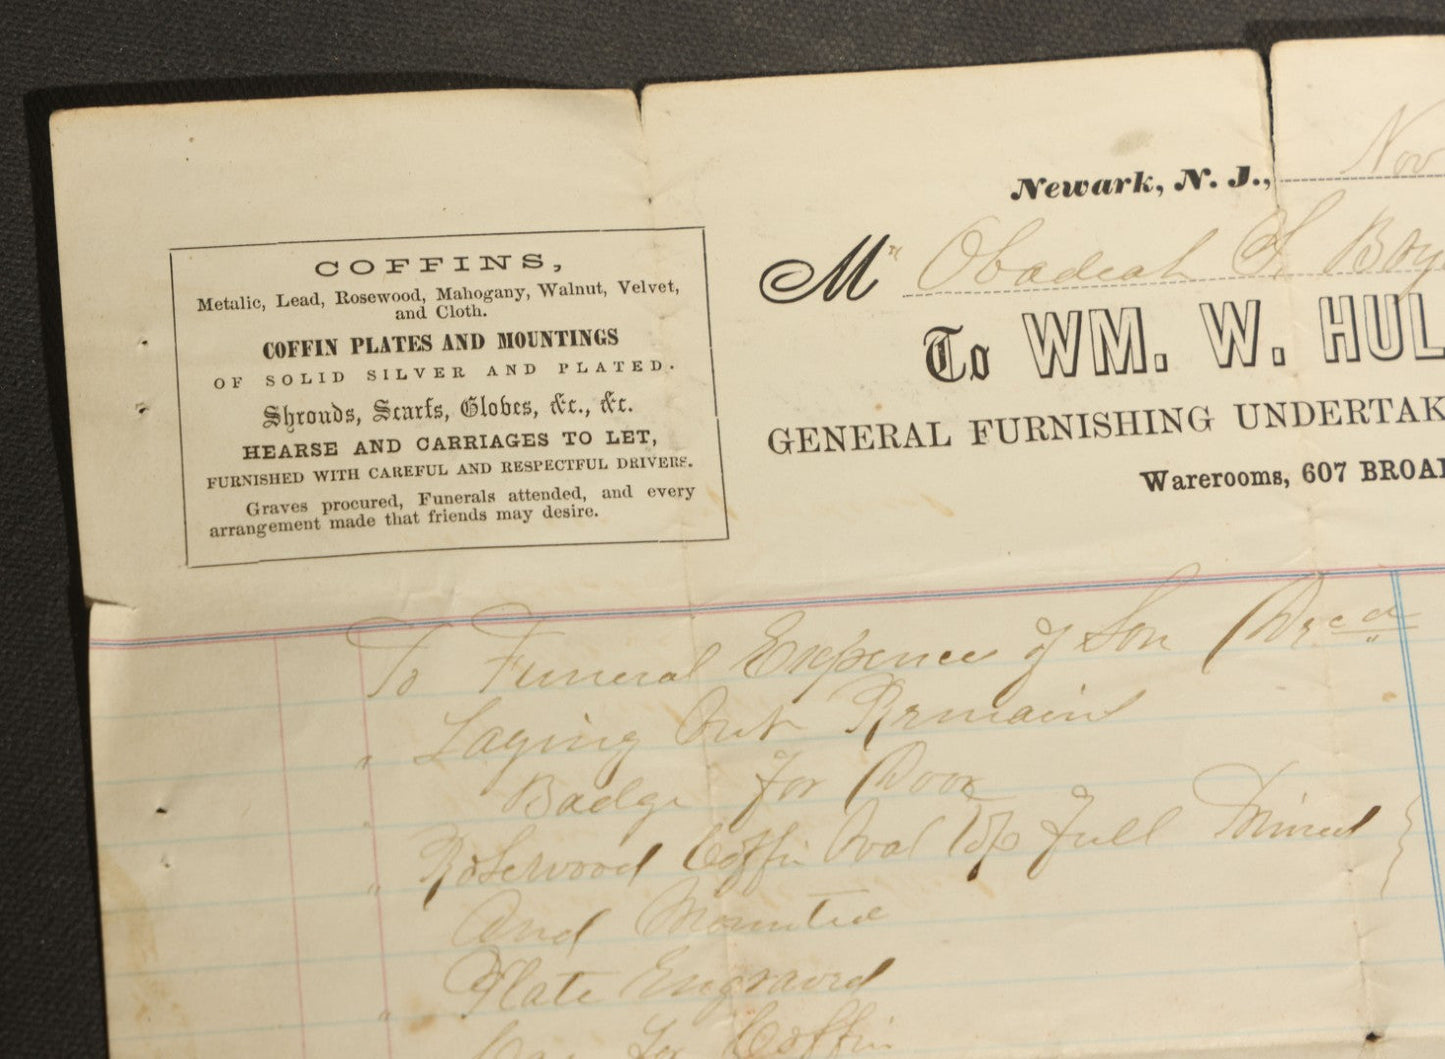 COFFINS,
Metalic, Lead, Rosewood, Mahogany, Walnut, Velvet,
and Cloth.
COFFIN PLATES AND MOUNTINGS
OF SOLID SILVER AND PLATED.
Shrouds, Scarfs, Globes, &c., &c.
HEARSE AND CARRIAGES TO LET,
FURNISHED WITH CAREFUL AND RESPECTFUL DRIVERS.
Graves procured, Funerals attended, and every
arrangement made that friends may desire.
Newark, N. J., Nov
Mr Obadeah
To WM. W. HUL
GENERAL FURNISHING UNDERTAK
Warerooms, 607 BROAD
To Funeral Expences of Son
" Laying Out Remains
Badge for Door
" Rosewood Coffin Oval Top full Trimed
And Mounted
" Plate Engraved
for Coffin